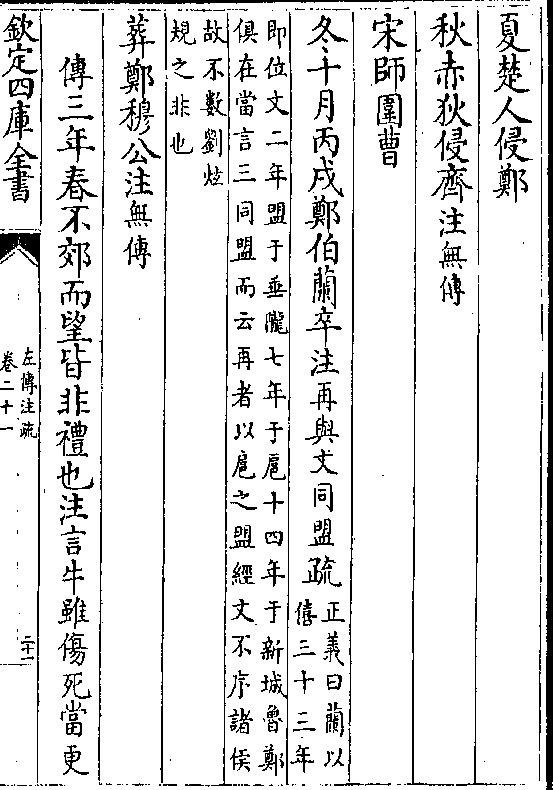 夏楚人侵鄭
秋赤狄侵齊注無傳
宋師圍曹
冬十月丙戌鄭伯蘭卒注再與文同盟疏正義曰蘭以
僖三十三年
即位文二年盟于垂隴七年于扈十四年于新城魯鄭
俱在當言三同盟而云再者以扈之盟經文不序諸侯
故不數劉炫
規之非也
葬鄭穆公注無傳
傳三年春不郊而望皆非禮也注言牛雖傷死當更
欽定四庫全書
左傳注疏
卷二十一
二十一